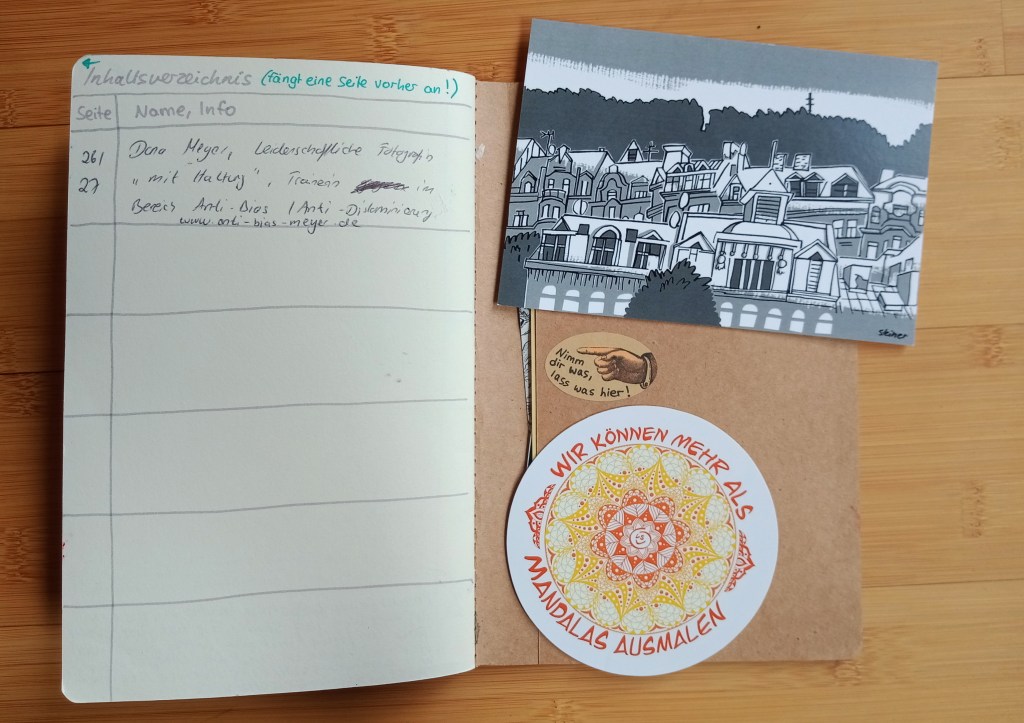 Inhaltsverzeichnis (fängt eine Seite vorher an!)
Seite Name, Info
26/ Dana Meyer, Leidenschaftliche Fotografin
27 "mit Haltung", Trainerin im
Bereich Anti-Bias / Anti-Diskriminierung
www.anti-bias-meyer.de
steiner
Nimm
dir was,
lass was hier!
WIR KÖNNEN MEHR ALS
MANDALAS AUSMALEN